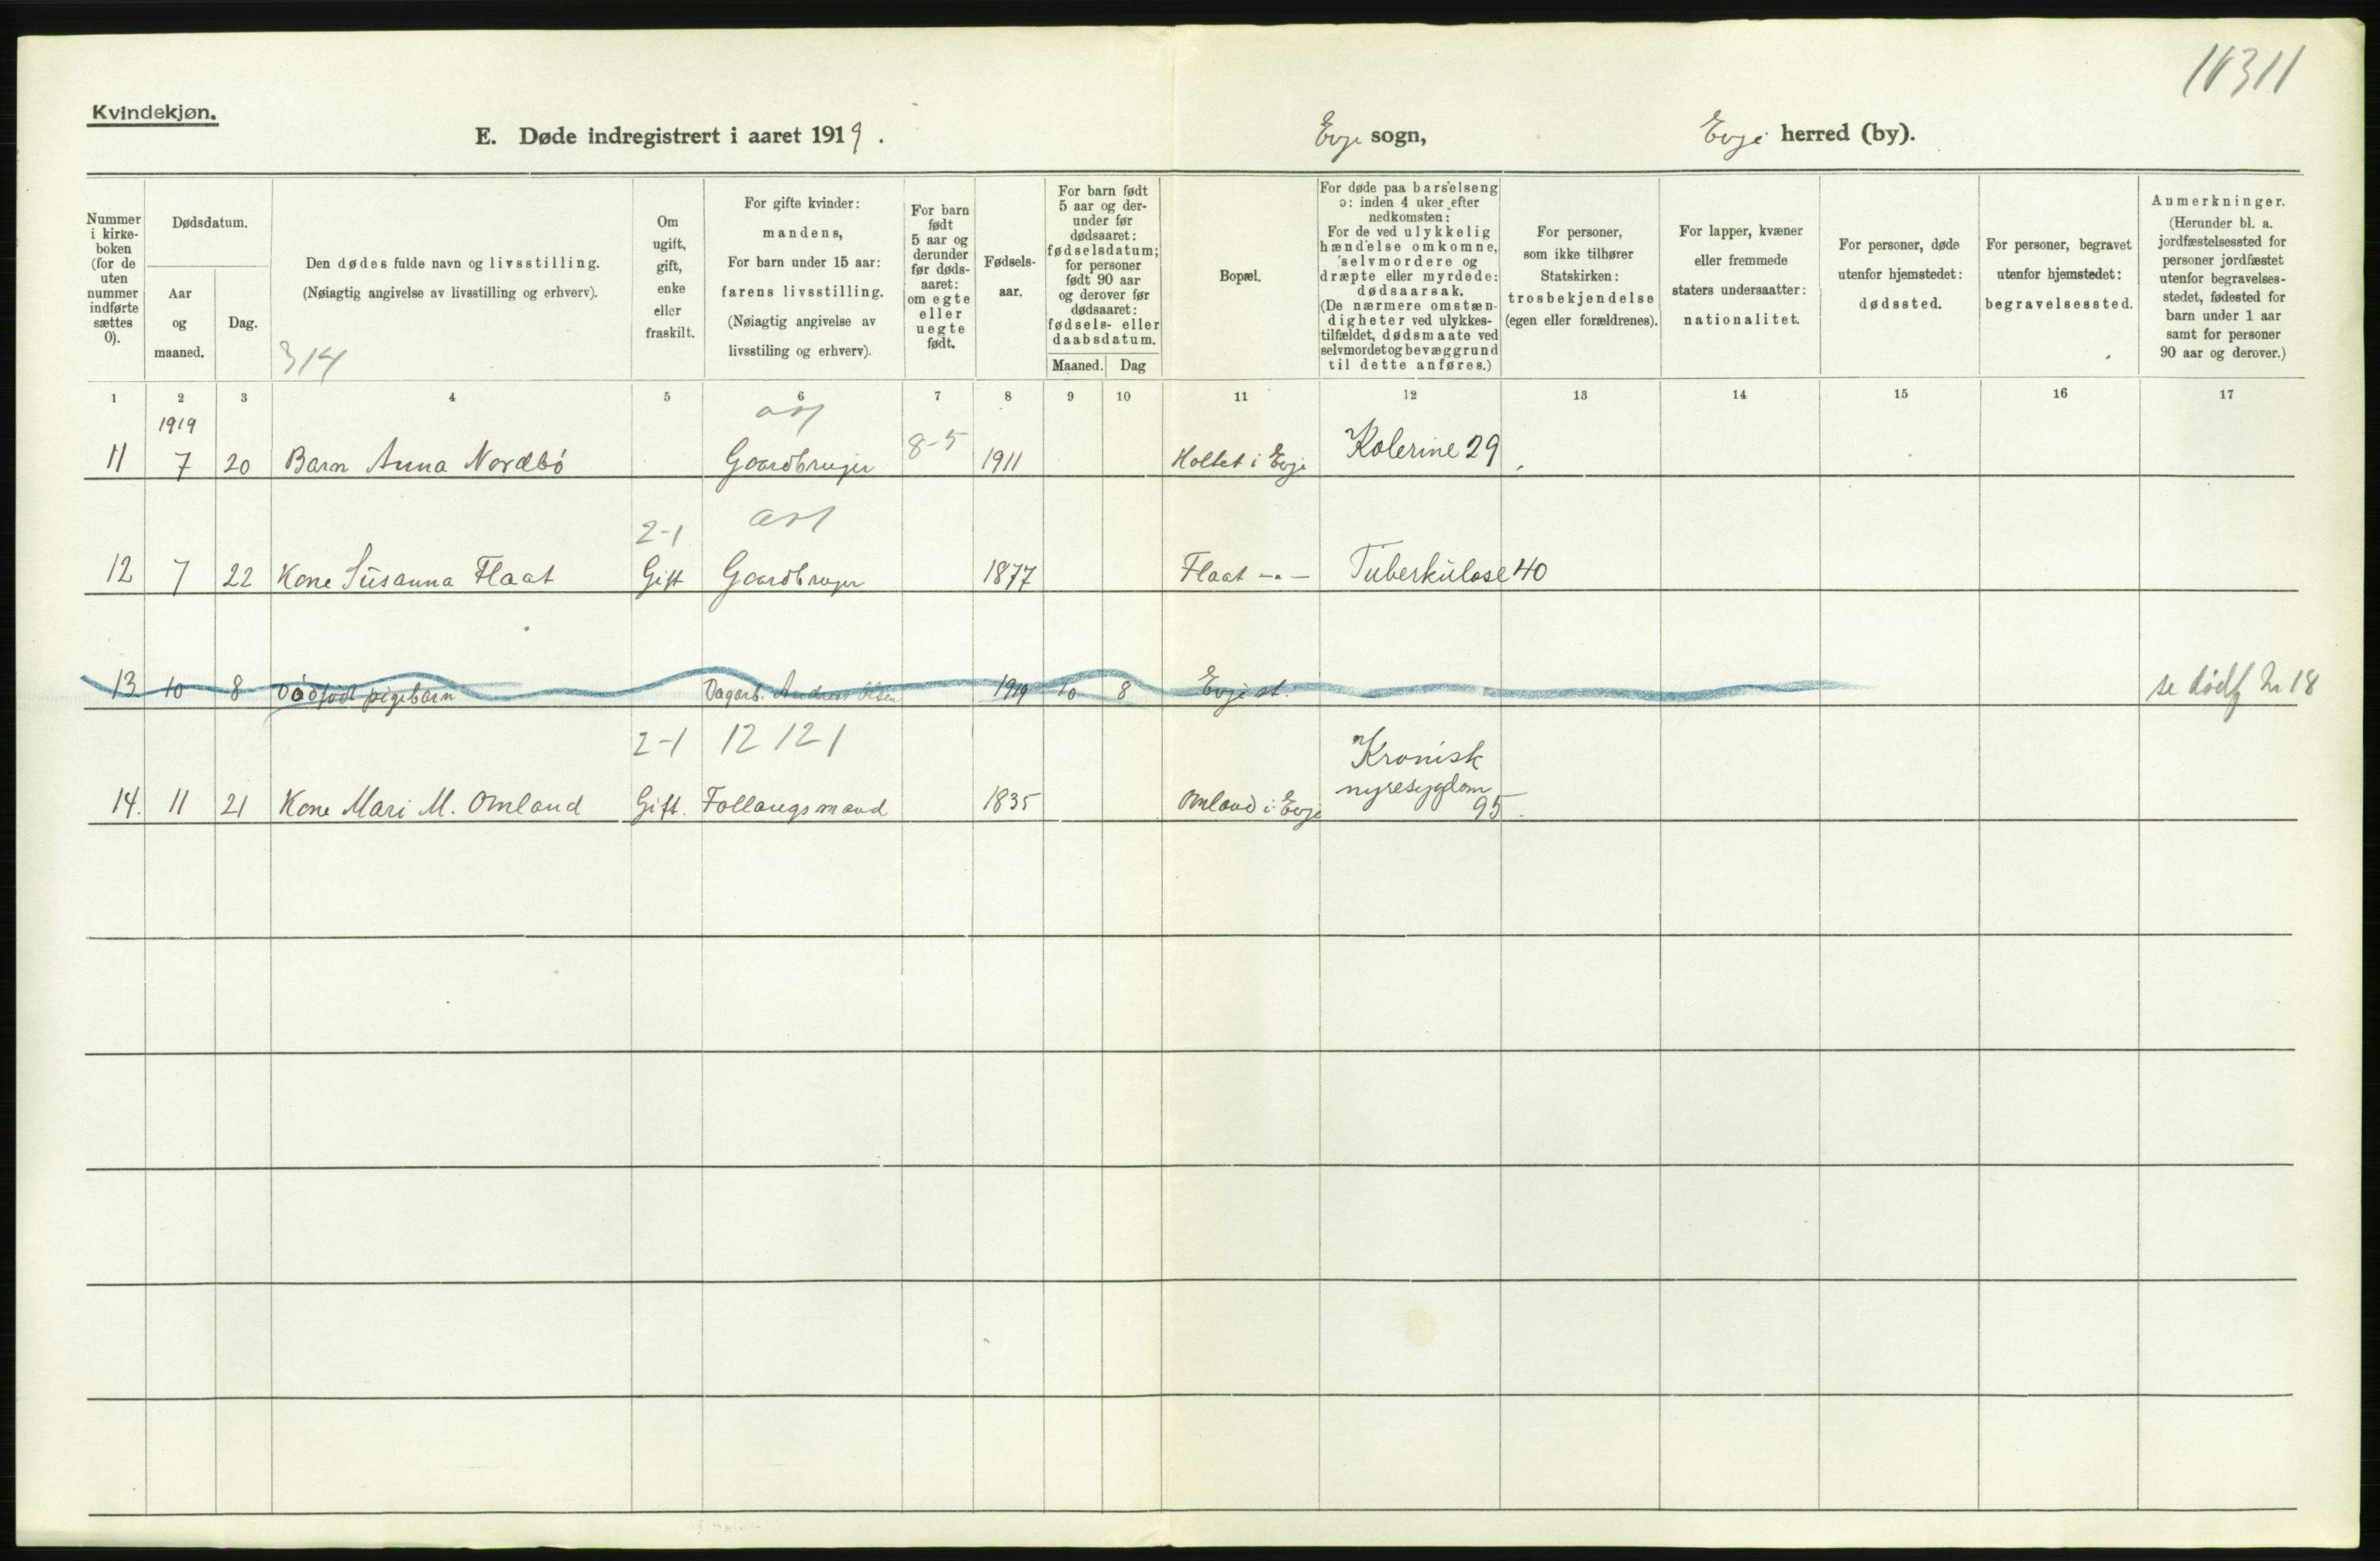 11311
Kvindekjøn.
E. Døde indregistrert i aaret 1919.
Evje sogn,
Evje herred (by).
Nummer
i kirke-
boken
(for de
uten
nummer
indførte
sættes
0).
Dødsdatum.
Aar
og
maaned.
Dag.
Den dødes fulde navn og livsstilling.
(Nøiagtig angivelse av livsstilling og erhverv).
314
Om
ugift,
gift,
enke
eller
fraskilt.
For gifte kvinder:
mandens,
For barn under 15 aar:
farens livsstilling.
(Nøiagtig angivelse av
livsstiling og erhverv).
For barn
født
5 aar og
derunder
før døds-
aaret:
om egte
eller
uegte
født.
Fødsels-
aar.
For barn født
5 aar og der-
under før
dødsaaret:
fødselsdatum;
for personer
født 90 aar
og derover før
dødsaaret:
fødsels- eller
daabsdatum.
Maaned. Dag
Bopæl.
For døde paa barselseng
ɔ: inden 4 uker efter
nedkomsten:
For de ved ulykkelig
hændelse omkomne,
selvmordere og
dræpte eller myrdede:
dødsaarsak.
(De nærmere omstæn-
digheter ved ulykkes-
tilfældet, dødsmaate ved
selvmordet og bevæggrund
til dette anføres.)
For personer,
som ikke tilhører
Statskirken:
trosbekjendelse
(egen eller forældrenes).
For lapper, kvæner
eller fremmede
staters undersaatter:
nationalitet.
For personer, døde
utenfor hjemstedet:
dødssted.
For personer, begravet
utenfor hjemstedet:
begravelsessted.
Anmerkninger.
(Herunder bl. a.
jordfæstelsessted for
personer jordfæstet
utenfor begravelses-
stedet, fødested for
barn under 1 aar
samt for personer
90 aar og derover.)
1 2 3 4 5 6 7 8 9 10 11 12 13 14 15 16 17
1919
11 7 20 Barn Anna Nordbö Gaardbruger 8-5 1911 Holtet i Evje Kolerine 29
2-1
12 7 22 Kone Susanna Flaat Gift Gaardbruger 1877 Flaat -"- Tuberkulose 40
13 10 8 Dödfödt pigebarn Dagarb. Andreas Olsen 1919 10 8 Evje st. se dødf Nr 18
2-1 12 121
14. 11 21 Kone Mari M. Omland Gift. Follaugsmand 1835 Omland i Evje Kronisk
nyresygdom
95